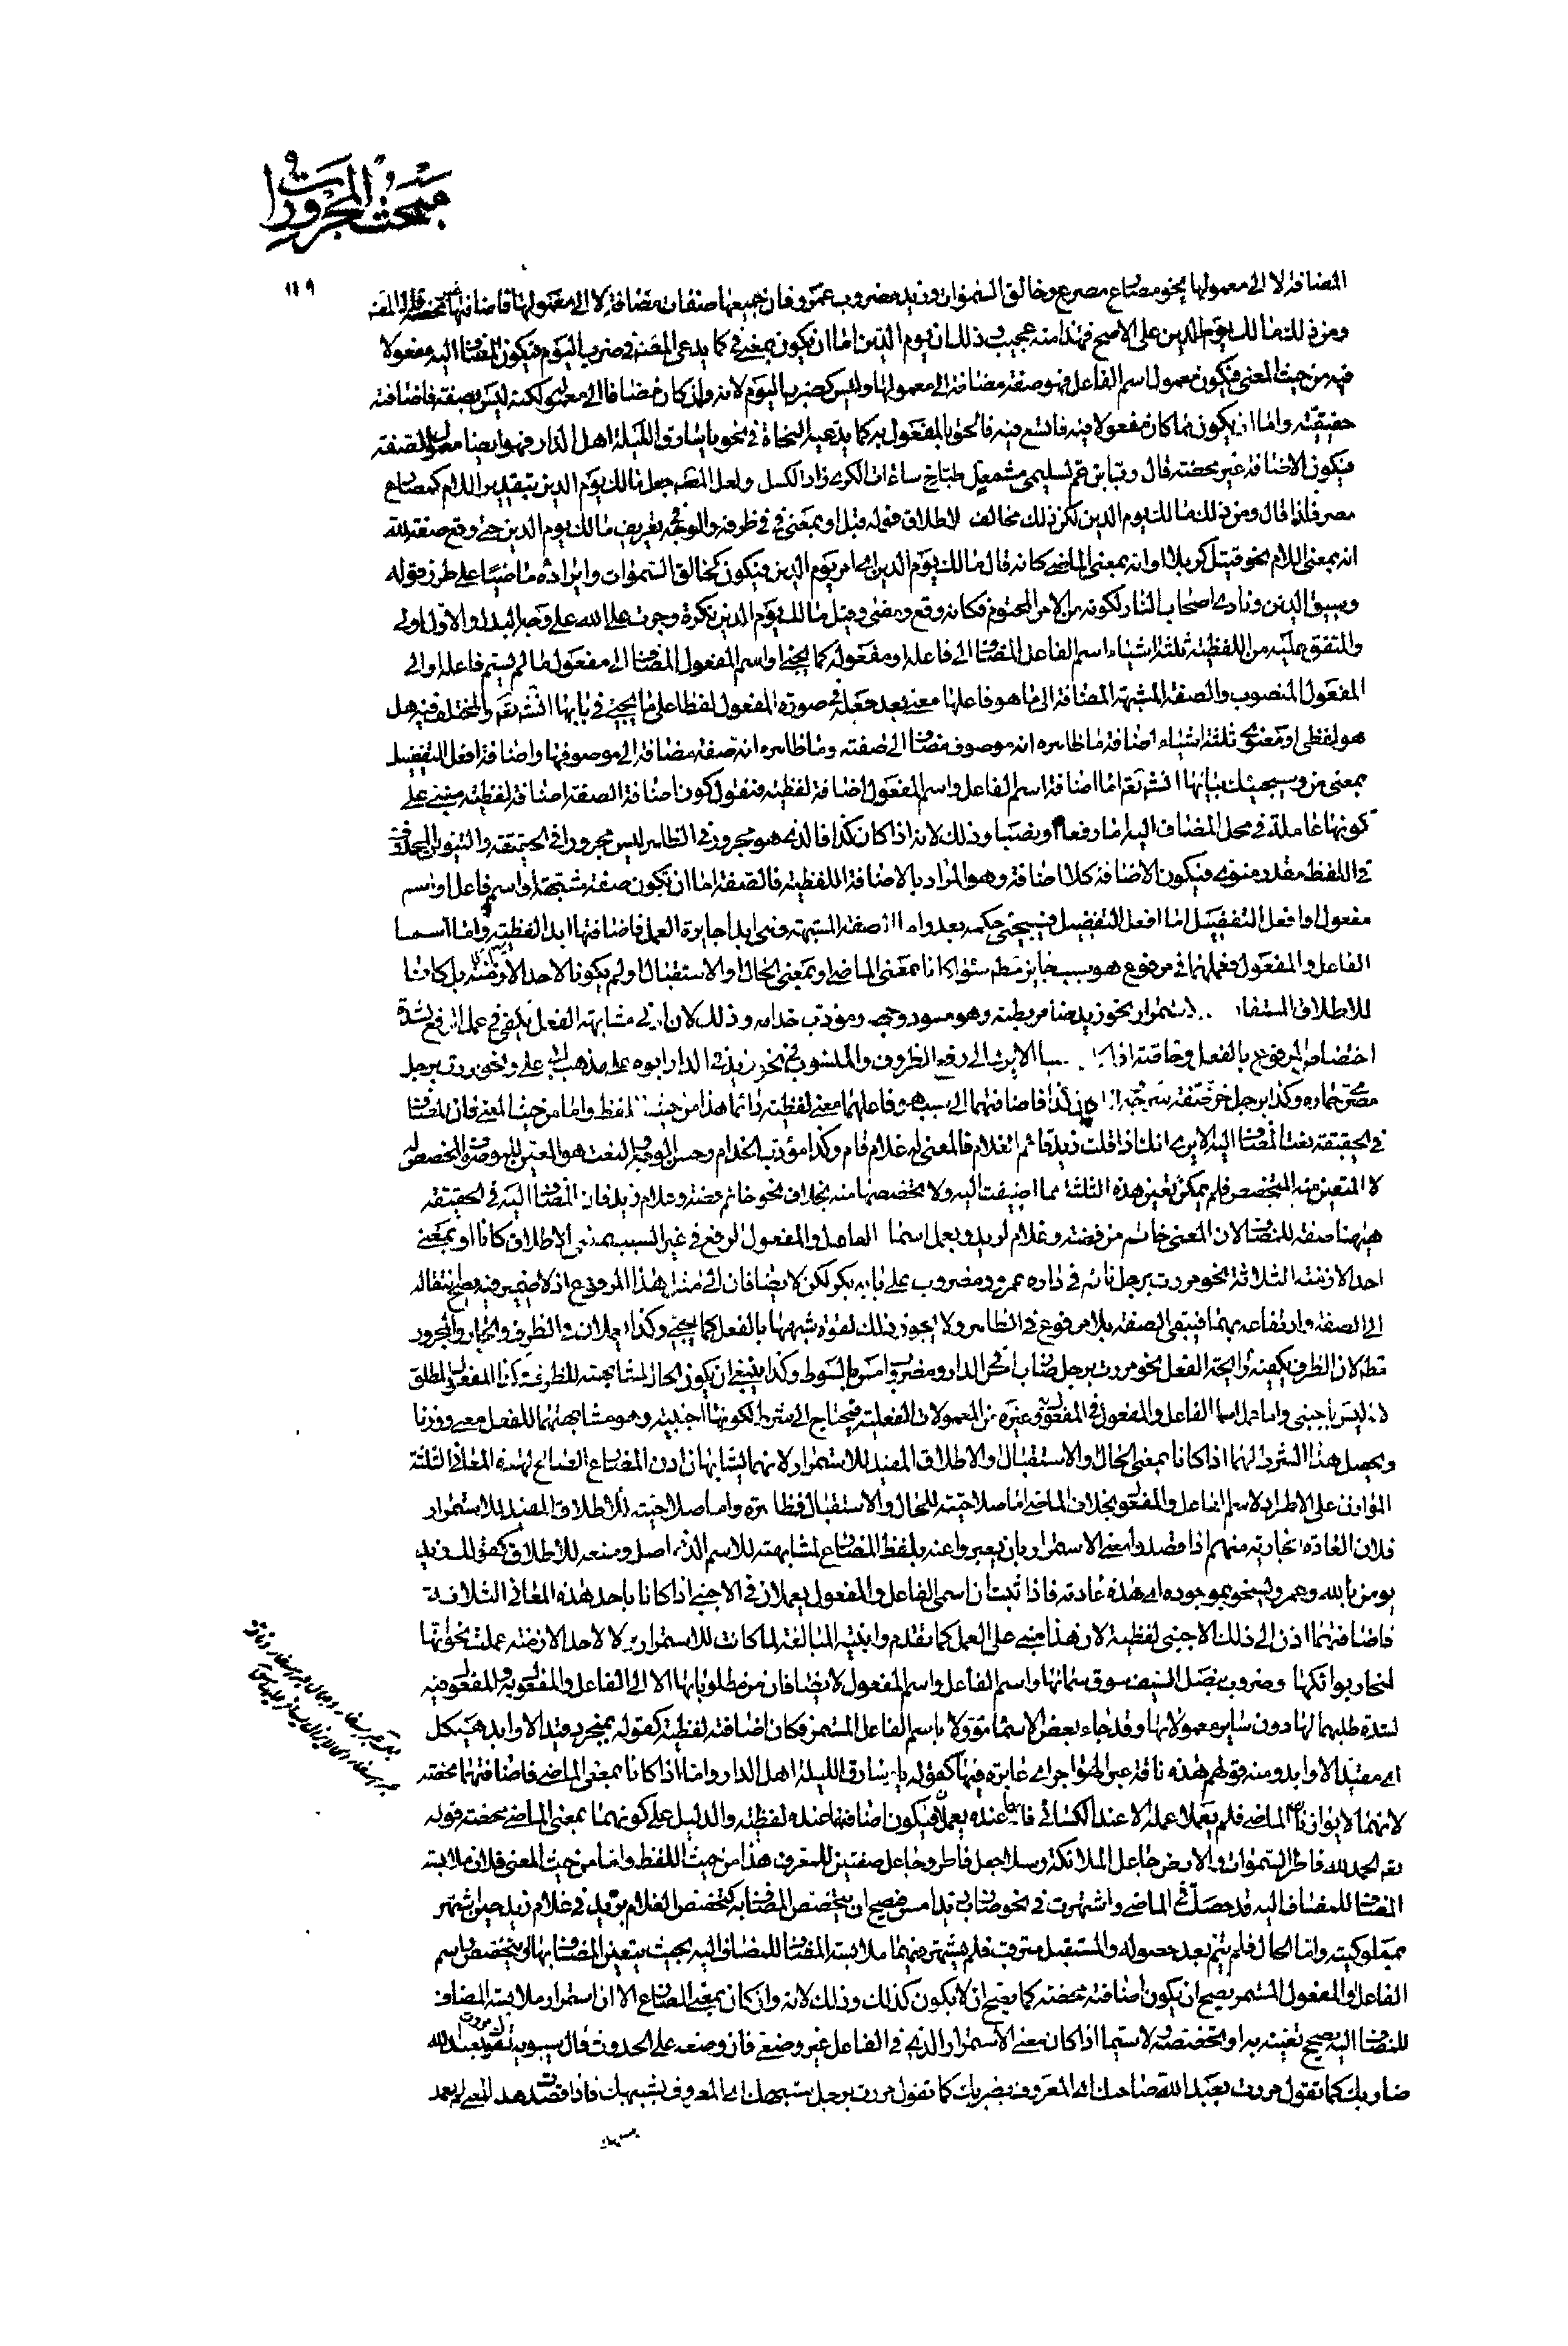 مبحث المجرورات
١٤٩
المضافة لا الى معمولها نحو مصارع مصر وخالق السموات وزيد مضروب عمرو فان جميعها صفات مضافة لا الى معمولها فاضافتها محضة قال المص
ومن ذلك مالك يوم الدين على الاصح فهذا منه عجيب وذلك ان يوم الدين اما ان يكون بمعنى في كما يدعى المص في ضرب اليوم فيكون المضاف اليه مفعولا
فيه من حيث المعنى فيكون معمول اسم الفاعل فهو صفة مضافة الى معمولها وليس كضرب اليوم لانه وان كان مضافا الى معموله لكنه ليس بصفة فاضافته
حقيقية واما ان يكون مما كان مفعولا فيه فاتسع فيه فالحق بالمفعول به كما يدعيه النحاة في نحو يا سارق الليلة اهل الدار فهو ايضا معمول الصفة
فيكون الاضافة غير محضة قال رب ابن عم لسليمى مشمعل طباخ ساعات الكرى زاد الكسل ولعل المص جعل مالك يوم الدين بتقدير اللام كمصارع
مصر فلذا قال ومن ذلك مالك يوم الدين لكن ذلك مخالف لاطلاق قوله قبل او بمعنى في في ظرفه والوجه في تعريف مالك يوم الدين حتى وقع صفة لله
انه بمعنى اللام نحو قتيل كربلا او انه بمعنى الماضي كانه قال مالك يوم الدين اي امر يوم الدين فيكون كخالق السموات وايراده ماضيا على طرز قوله
وسيق الذين ونادى اصحاب النار لكونه من الامر المحتوم فكانه وقع ومضى وقيل مالك يوم الدين نكرة وجرت على الله على وجه البدل والاول اولى
والمتفق عليه من اللفظية ثلثة اشياء اسم الفاعل المضاف الى فاعله او مفعوله كما يجئ واسم المفعول المضاف الى مفعول ما لم يسم فاعله او الى
المفعول المنصوب والصفة المشبهة المضافة الى ما هو فاعلها معنى بعد جعله في صورة المفعول لفظا على ما يجئ في بابها انشاء الله تعالى والمختلف فيه هل
هو لفظي او معنوي ثلثة اشياء اضافة ما ظاهره انه موصوف مضاف الى صفته وما ظاهره انه صفة مضافة الى موصوفها واضافة افعل التفضيل
بمعنى من وسيجيئك بيانها انشاء الله تعالى اما اضافة اسم الفاعل واسم المفعول اضافة لفظية فنقول كون اضافة الصفة اضافة لفظية مبني على
كونها عاملة في محل المضاف اليه اما رفعا او نصبا وذلك لانه اذا كان كذا فالذي هو مجرور في الظاهر ليس مجرورا في الحقيقة والتنوين المحذوف
في اللفظ مقدر منوي فيكون الاضافة كلا اضافة وهو المراد بالاضافة اللفظية فالصفة اما ان تكون صفة مشبهة او اسم فاعل او اسم
مفعول او افعل التفضيل اما افعل التفضيل فسيجئ حكمه بعد واما الصفة المشبهة فهي ابدا جايزة العمل فاضافتها ابدا لفظية واما اسما
الفاعل والمفعول فعملهما في مرفوع هو سبب جايز مطلقا سواء كانا بمعنى الماضي او بمعنى الحال او الاستقبال او لم يكونا لاحد الازمنة بل كانا
للاطلاق المستفاد الاستمرار نحو زيد ضامر بطنه وهو مسود وجهه ومؤدب خدامه وذلك لان ادنى مشابهة الفعل تكفي في عمل الرفع لشدة
اختصاص المرفوع بالفعل وخاصة اذا سببا الا ترى الى رفع الظروف والمنسوب في نحو زيد في الدار ابوه على مذهب ابي علي ونحو مررت برجل
مصري حماره وكذا برجل خز صفة سرجه فاذا كان كذا فاضافتهما الى سبب هو فاعلهما معنى لفظية دائما هذا من حيث اللفظ واما من حيث المعنى فان المضاف
في الحقيقة نعت المضاف اليه الا ترى انك اذا قلت زيد قائم الغلام فالمعنى له غلام قام وكذا مؤدب الخدام وحسن الوجه والنعت هو المعين للموصوف والمخصص له
لا المتعين منه المتخصص فلم يمكن تعين هذه الثلثة مما اضيفت اليه ولا تخصصها منه بخلاف نحو خاتم فضة وغلام زيد فان المضاف اليه في الحقيقة
هيهنا صفة للمضاف لان المعنى خاتم من فضة وغلام لزيد ويعمل اسما الفاعل والمفعول الرفع في غير السبب بمعنى الاطلاق كانا او بمعنى
احد الازمنة الثلاثة نحو مررت برجل نائم في داره عمرو ومضروب على بابه بكر لكن لا يضافان الى مثل هذا المرفوع اذ لا ضمير فيه يصح انتقاله
الى الصفة وارتفاعه بها فتبقى الصفة بلا مرفوع في الظاهر ولا يجوز ذلك لقوة شبهها بالفعل كما يجئ وكذا يعملان في الظرف والجار والمجرور
مطلقا لان الظرف يكفيه رائحة الفعل نحو مررت برجل ضارب امس في الدار ومضروب امس بالسوط وكذا ينبغي ان يكون الحال لمشابهته للظرف وكذا المفعول المطلق
لانه ليس باجنبي واما عمل اسما الفاعل والمفعول في المفعول به وغيره من المعمولات الفعلية فيحتاج الى شرط لكونها اجنبية وهو مشابهتهما للفعل معنى ووزنا
ويحصل هذا الشرط لهما اذا كانا بمعنى الحال والاستقبال والاطلاق المفيد للاستمرار لانهما يشابهان اذن المضارع الصالح لهذه المعاني الثلثة
الموازن على الاطراد لاسم الفاعل والمفعول بخلاف الماضي اما صلاحيته للحال والاستقبال فظاهرة واما صلاحيته للاطلاق المفيد للاستمرار
فلان العادة جارية منهم اذا قصدوا معنى الاستمرار بان يعبروا عنه بلفظ المضارع لمشابهته للاسم الذي اصل وضعه للاطلاق كقولك زيد
يؤمن بالله وعمرو يسخو بموجوده اي هذه عادته فاذا ثبت ان اسمي الفاعل والمفعول يعملان في الاجنبي اذا كانا باحد هذه المعاني الثلاثة
فاضافتهما اذن الى ذلك الاجنبي لفظية لان هذا مبني على العمل كما تقدم وابنية المبالغة لما كانت للاستمرار لا لاحد الازمنة عملت نحو انه
لمنحار بوائكها وضروب بنصل السيف سوق سمانها واسم الفاعل واسم المفعول لا يضافان من مطلوباتها الا الى الفاعل والمفعول به والمفعول فيه
لشدة طلبهما لها دون ساير معمولاتها وقد جاء بعض الاسماء مؤولا باسم الفاعل المستمر فكان اضافته لفظية كقوله بمنجرد قيد الاوابد هيكل
اي مقيد الاوابد ومنه قولهم هذه ناقة عبر الهواجر اي عابرة فيها كقوله يا سارق الليلة اهل الدار واما اذا كانا بمعنى الماضي فاضافتهما محضة
لانهما لا يوازنان الماضي فلم يعملا عمله الا عند الكسائي فانهما عنده يعملان فيكون اضافتهما عنده لفظية والدليل على كونهما بمعنى الماضي محضة قوله
تعالى الحمد لله فاطر السموات والارض جاعل الملائكة رسلا جعل فاطر وجاعل صفتين للمعرفة هذا من حيث اللفظ واما من حيث المعنى فلان ملابسة
المضاف للمضاف اليه قد حصلت في الماضي واشتهرت في نحو ضارب زيد امس فصح ان يتخصص المضاف به كتخصص الغلام بزيد في غلام زيد حين اشتهر
بمملوكيته واما الحال فلم يتم بعد حصوله والمستقبل مترقب فلم يشتهر فيهما ملابسة المضاف للمضاف اليه بحيث يتعين المضاف بها او يتخصص واسم
الفاعل والمفعول المستمر يصح ان يكون اضافته محضة كما يصح ان لا يكون كذلك وذلك لانه وان كان بمعنى المضارع الا ان استمرار ملابسة المضاف
للمضاف اليه يصحح تعينه به او تخصصه لا سيما اذا كان معنى الاستمرار الذي في الفاعل غير وضعي فان وضعه على الحدوث قال سيبويه تقول مررت بعبد الله
ضاربك كما تقول مررت بعبد الله صاحبك اي المعروف بضربك كما تقول مررت برجل شبيهك اي المعروف بشبهك فاذا قصدت هذا المعنى لم يعمل